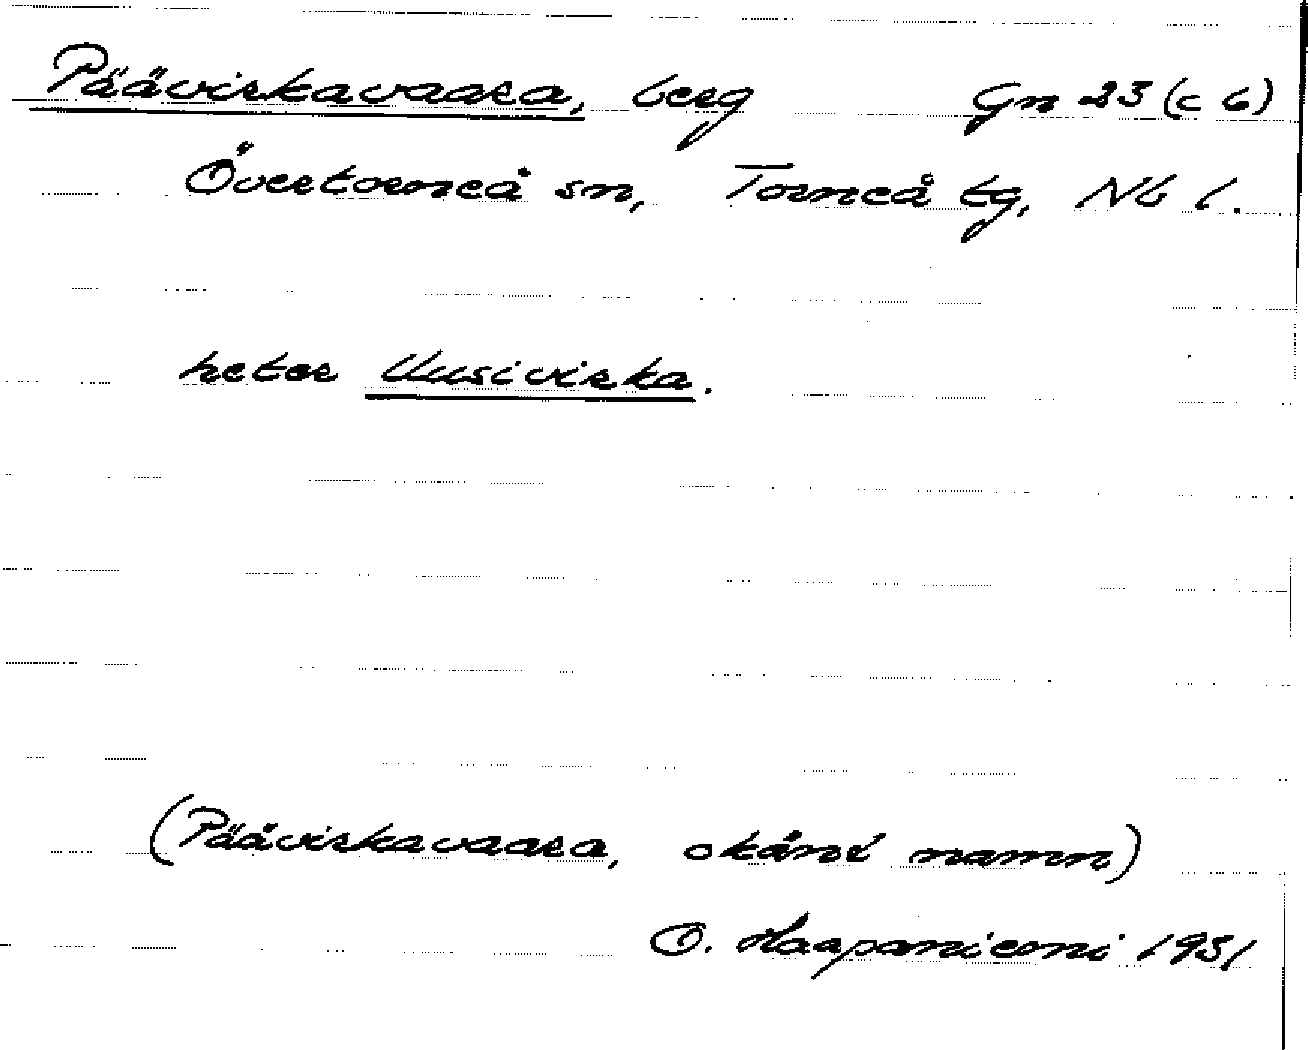 Päävirkavaara, berg Gn 23 (c 6)
Övertorneå sn, Torneå tg, Nb l.
heter Uusivirka.
(Päävirkavaara, okänt namn)
O. Haapaniemi 1951